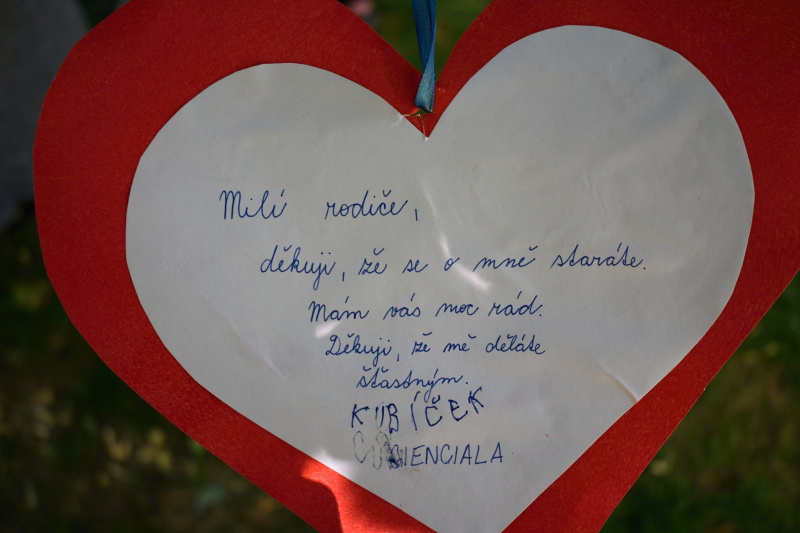 Milí rodiče,
děkuji, že se o mně staráte.
Mám vás moc rád.
Děkuji, že mě děláte
šťastným.
KUBÍČEK
CIENCIALA